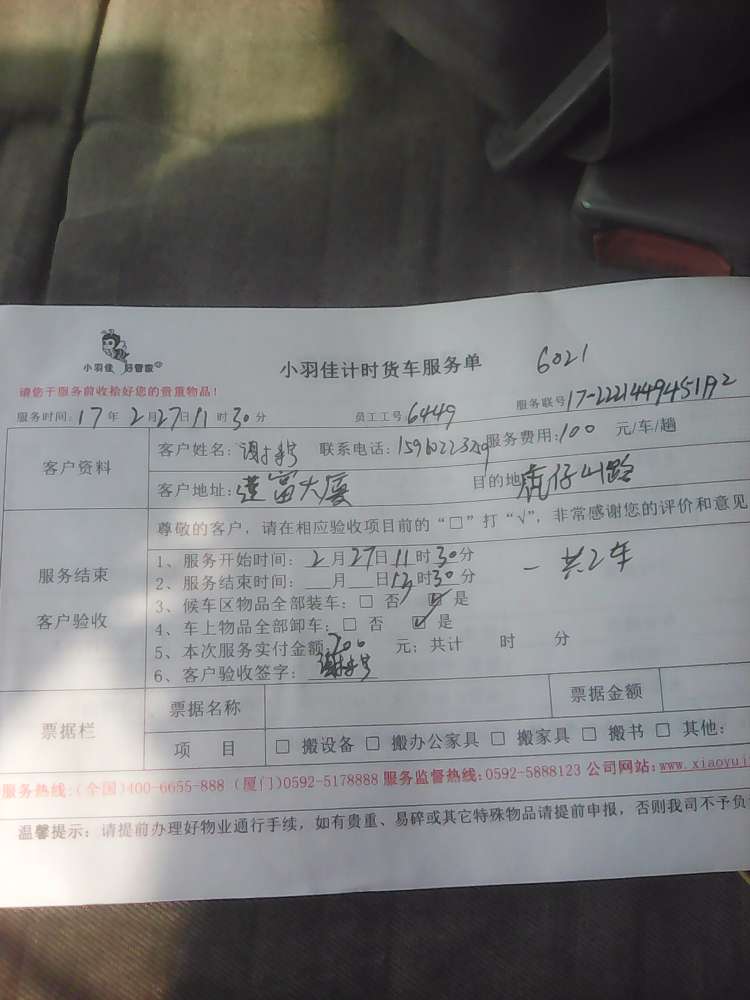 小羽佳 好管家
小羽佳计时货车服务单 6021
请您于服务前收拾好您的贵重物品！
服务时间：17年2月27日11时30分 员工工号6449 服务联号17-222144945192
客户资料
客户姓名：谢 联系电话：15960223259 服务费用：100 元/车/趟
客户地址：莲富大厦 目的地 虎仔山路
服务结束
客户验收
尊敬的客户，请在相应验收项目前的“□”打“√”，非常感谢您的评价和意见
1、服务开始时间：2月27日11时30分
2、服务结束时间：__月__日13时30分
一共2车
3、候车区物品全部装车：□ 否 ☑ 是
4、车上物品全部卸车：□ 否 ☑ 是
5、本次服务实付金额：200 元；共计 时 分
6、客户验收签字：谢
票据栏
票据名称 票据金额
项 目 □ 搬设备 □ 搬办公家具 □ 搬家具 □ 搬书 □ 其他：
服务热线：(全国)400-6655-888 (厦门)0592-5178888 服务监督热线：0592-5888123 公司网站：www.xiaoyuj
温馨提示：请提前办理好物业通行手续，如有贵重、易碎或其它特殊物品请提前申报，否则我司不予负